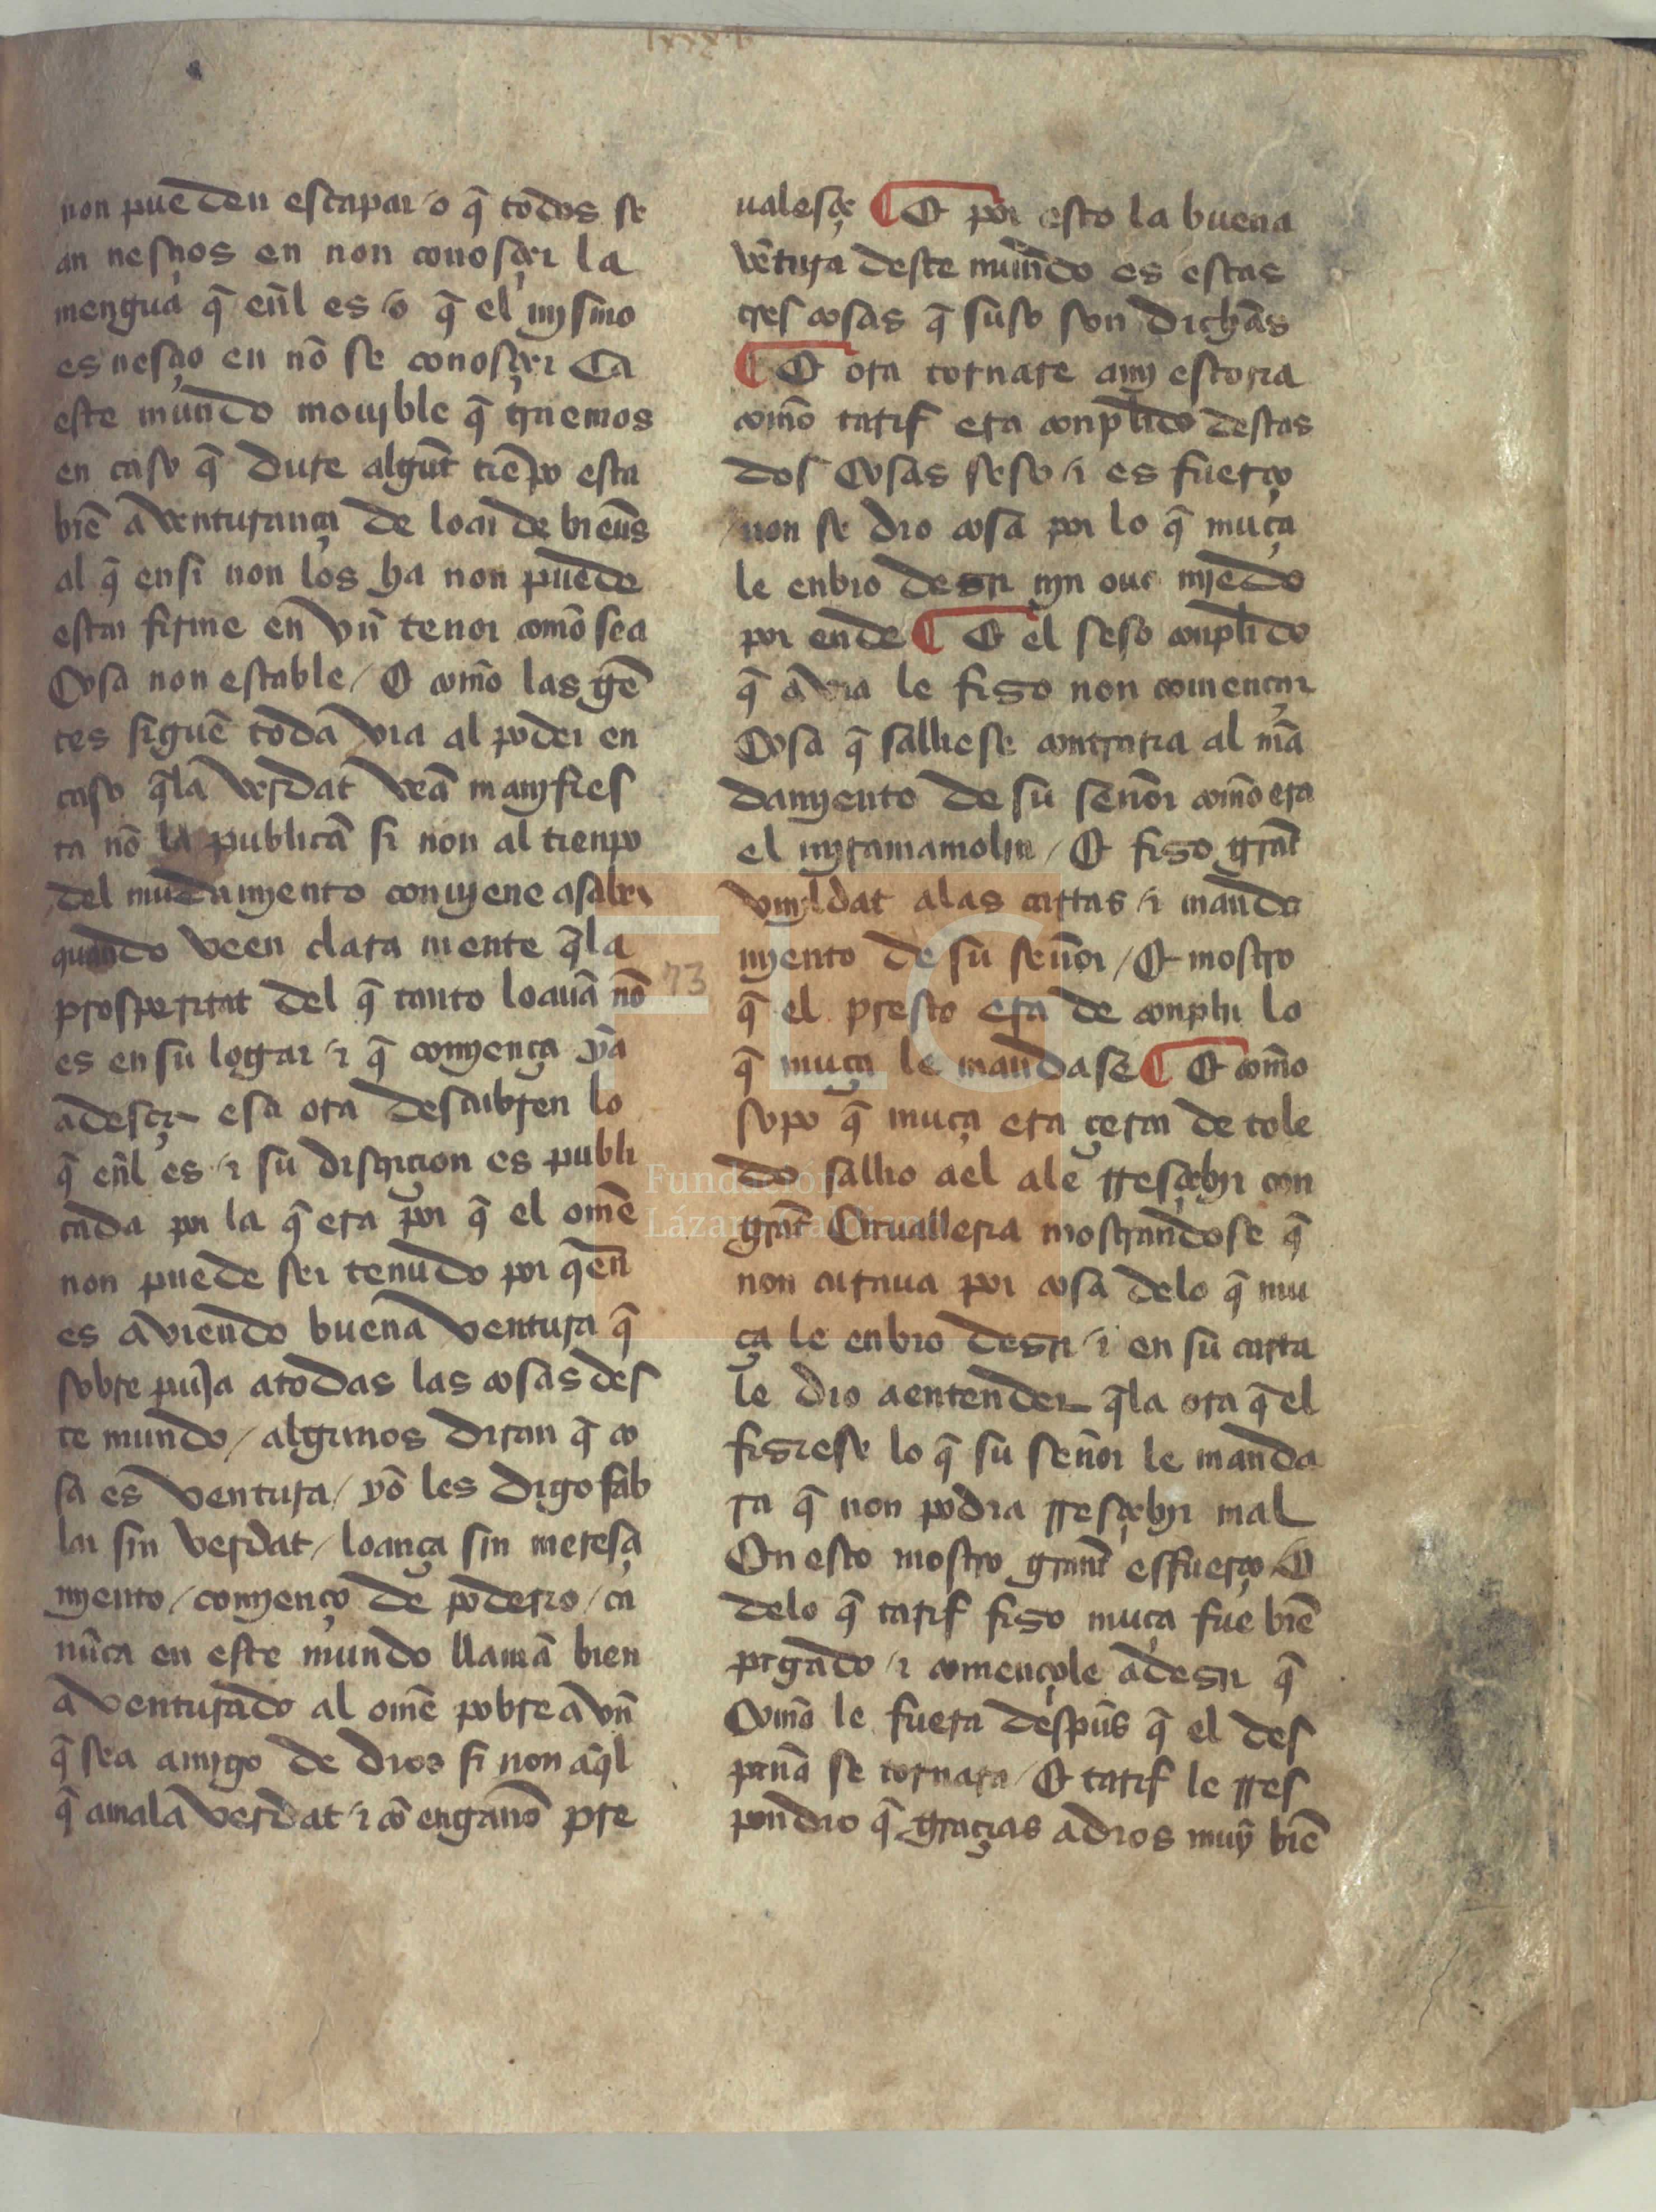 lxxxi
non pueden escapar / o q̄ todos se
an nesçios en non conosçer la
mengua q̄ eñl es / o q̄ el mjsmo
es nesçio en nō se conosçer Ca
este mundo moujble q̄ traemos
en caso q̄ dure algūt tiēpo esta
biē aventurança de loar de bieñs
al q̄ ensi non los ha non puede
estar firme en vn̄ tenor comō sea
Cosa non estable / E comō las gē
tes siguē toda via al poder en
caso q̄la verdat veā manjfies
ta nō la publicā si non al tienpo
del mudamjento conujene asaber
quando veen clara mente q̄la
prosperitat del q̄ tanto loauā nō
es en su logar / ⁊ q̄ comjença ya
adesçir esa ora descubren lo
q̄ eñl es / ⁊ su disçriçion es publi
cada por la q̄ era por q̄ el omē
non puede ser tenudo por q̄en
es aviendo buena ventura q̄
sobre puja atodas las cosas des
te mundo / algunos diran q̄ co
sa es ventura / yo les digo fab
lar sin verdat / loança sin meresçi
mjento / comjenço de poderio / ca
nūca en este mundo llamā bien
aventurado al omē pobre avn̄
q̄ sea amigo de dios si non aq̄l
q̄ amala verdat / ⁊ cō engaño pre
73
ualesçe ¶ E por esto la buena
vētura deste mundo es estas
tres cosas q̄ suso son dichas
¶ E ora tornare amj estoria
comō tarif era conplido destas
dos Cosas seso / ⁊ es fuerço
non se dio cosa por lo q̄ muça
le enbio desir njn ouo mjedo
por ende ¶ E el seso conplido
q̄ avia le fiso non començar
Cosa q̄ salliese contraria al mā
damjento de su señor comō era
el mjramamolin / E fiso grāt
vmjldat alas cartas / ⁊ manda
mjento de su señor / E mostro
q̄ el presto era de conplir lo
q̄ muça le mandase ¶ E comō
sopo q̄ muça era çerca de tole
do sallio ael ale rresçebir con
grāt Cauallería mostrandose q̄
non curaua por cosa delo q̄ mu
ça le enbio desir / ⁊ en su carta
le dio aentender q̄la ora q̄ el
fisiese lo q̄ su señor le manda
ra q̄ non podria rresçebir mal
En esto mostro grant esfuerço / E
delo q̄ tarif fiso muça fue biē
pagado / ⁊ començole adesir q̄
Comō le fuera despūs q̄ el des
pana se tornara / E tarif le rres
pondio q̄ graçias adios muy biē
Fundación
Lázaro Galdiano
FLG